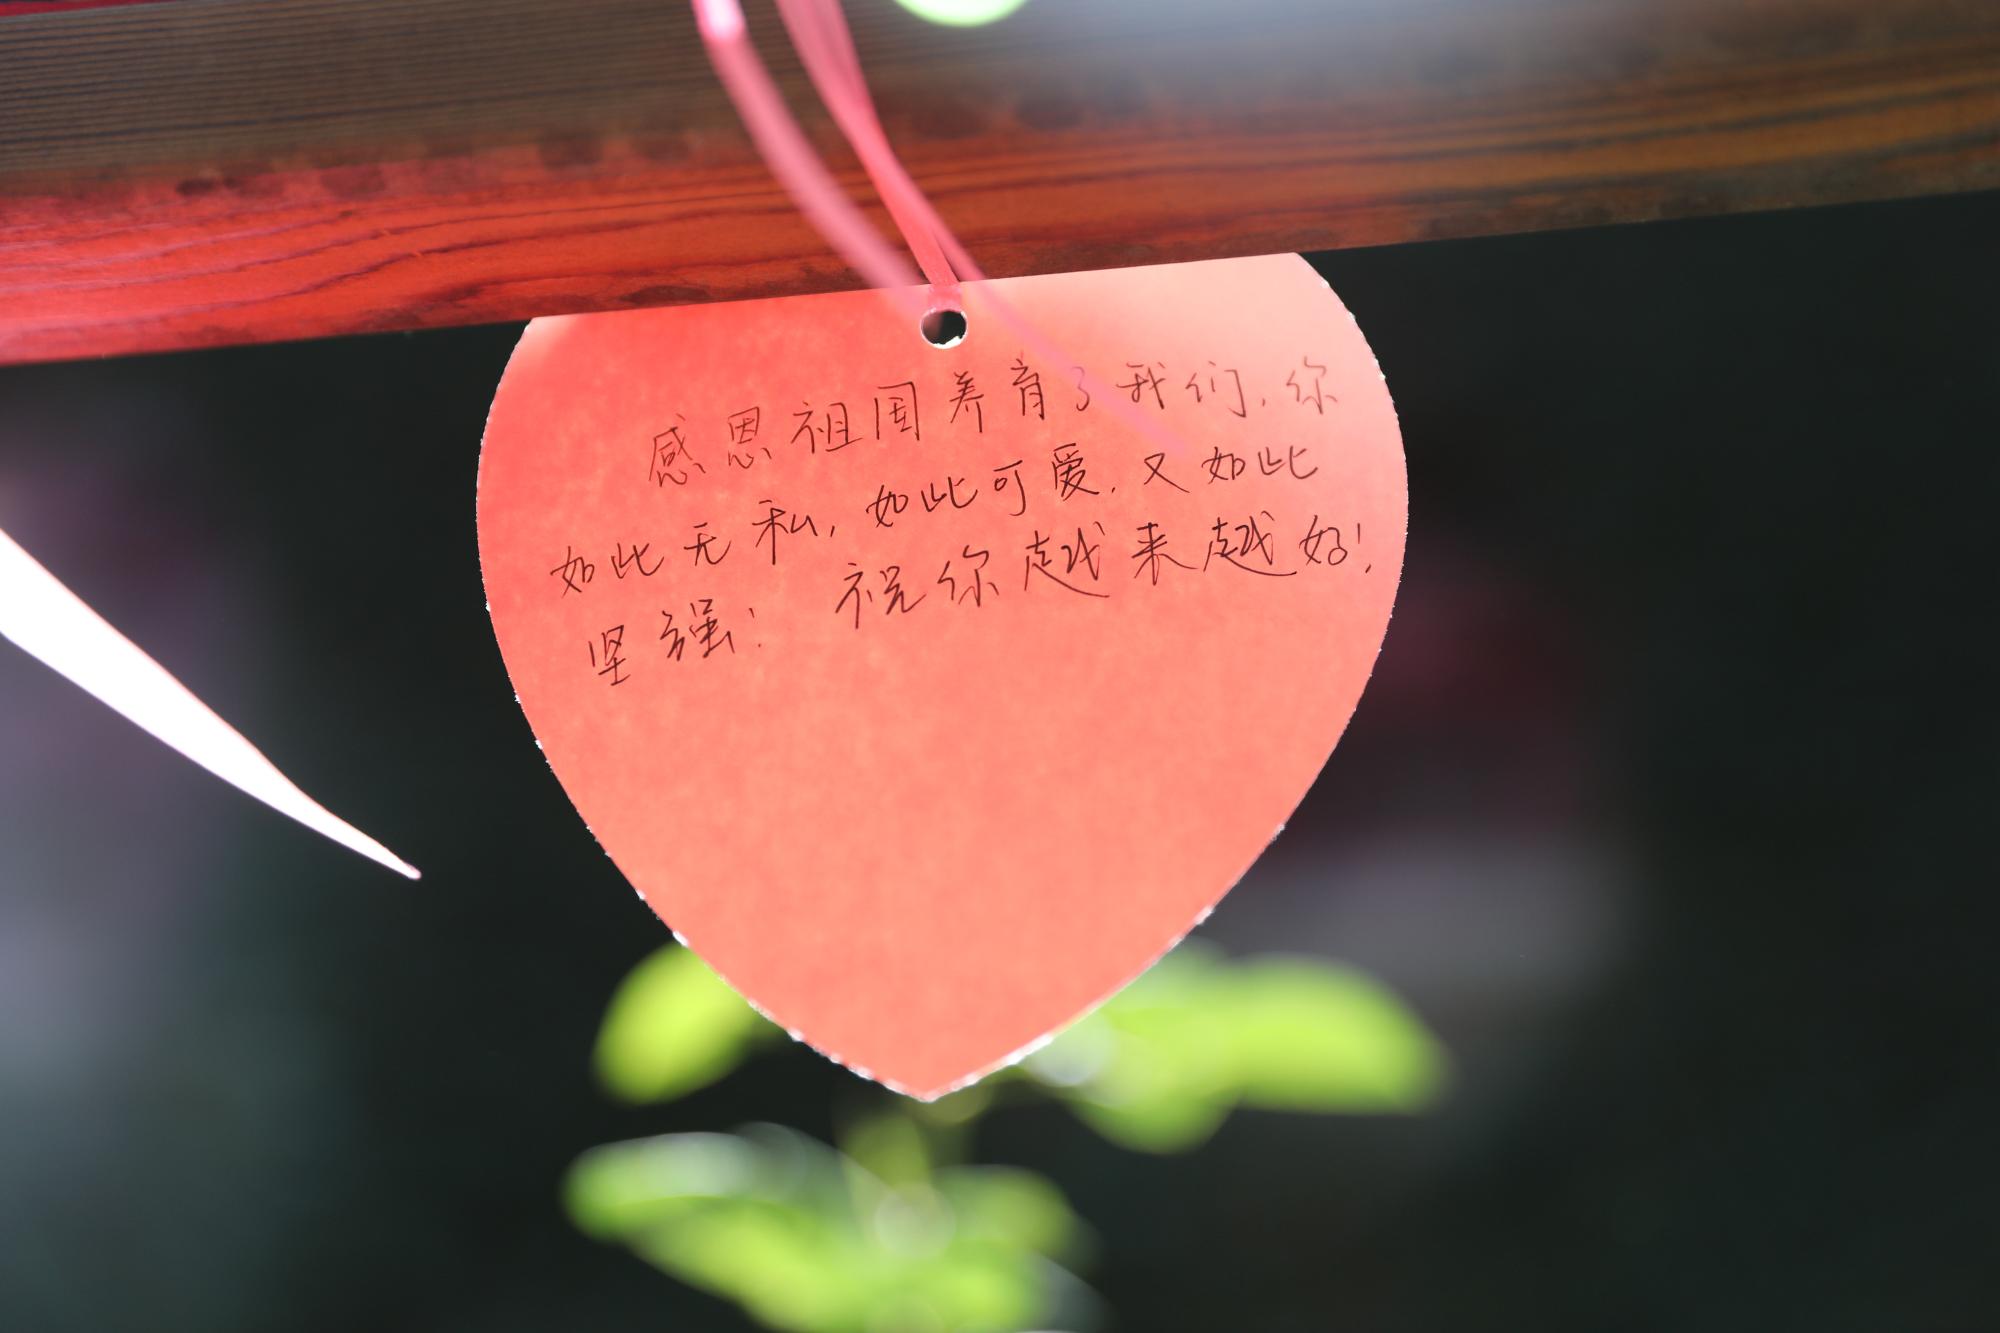 感恩祖国养育了我们，你
如此无私，如此可爱，又如此
坚强！祝你越来越好！